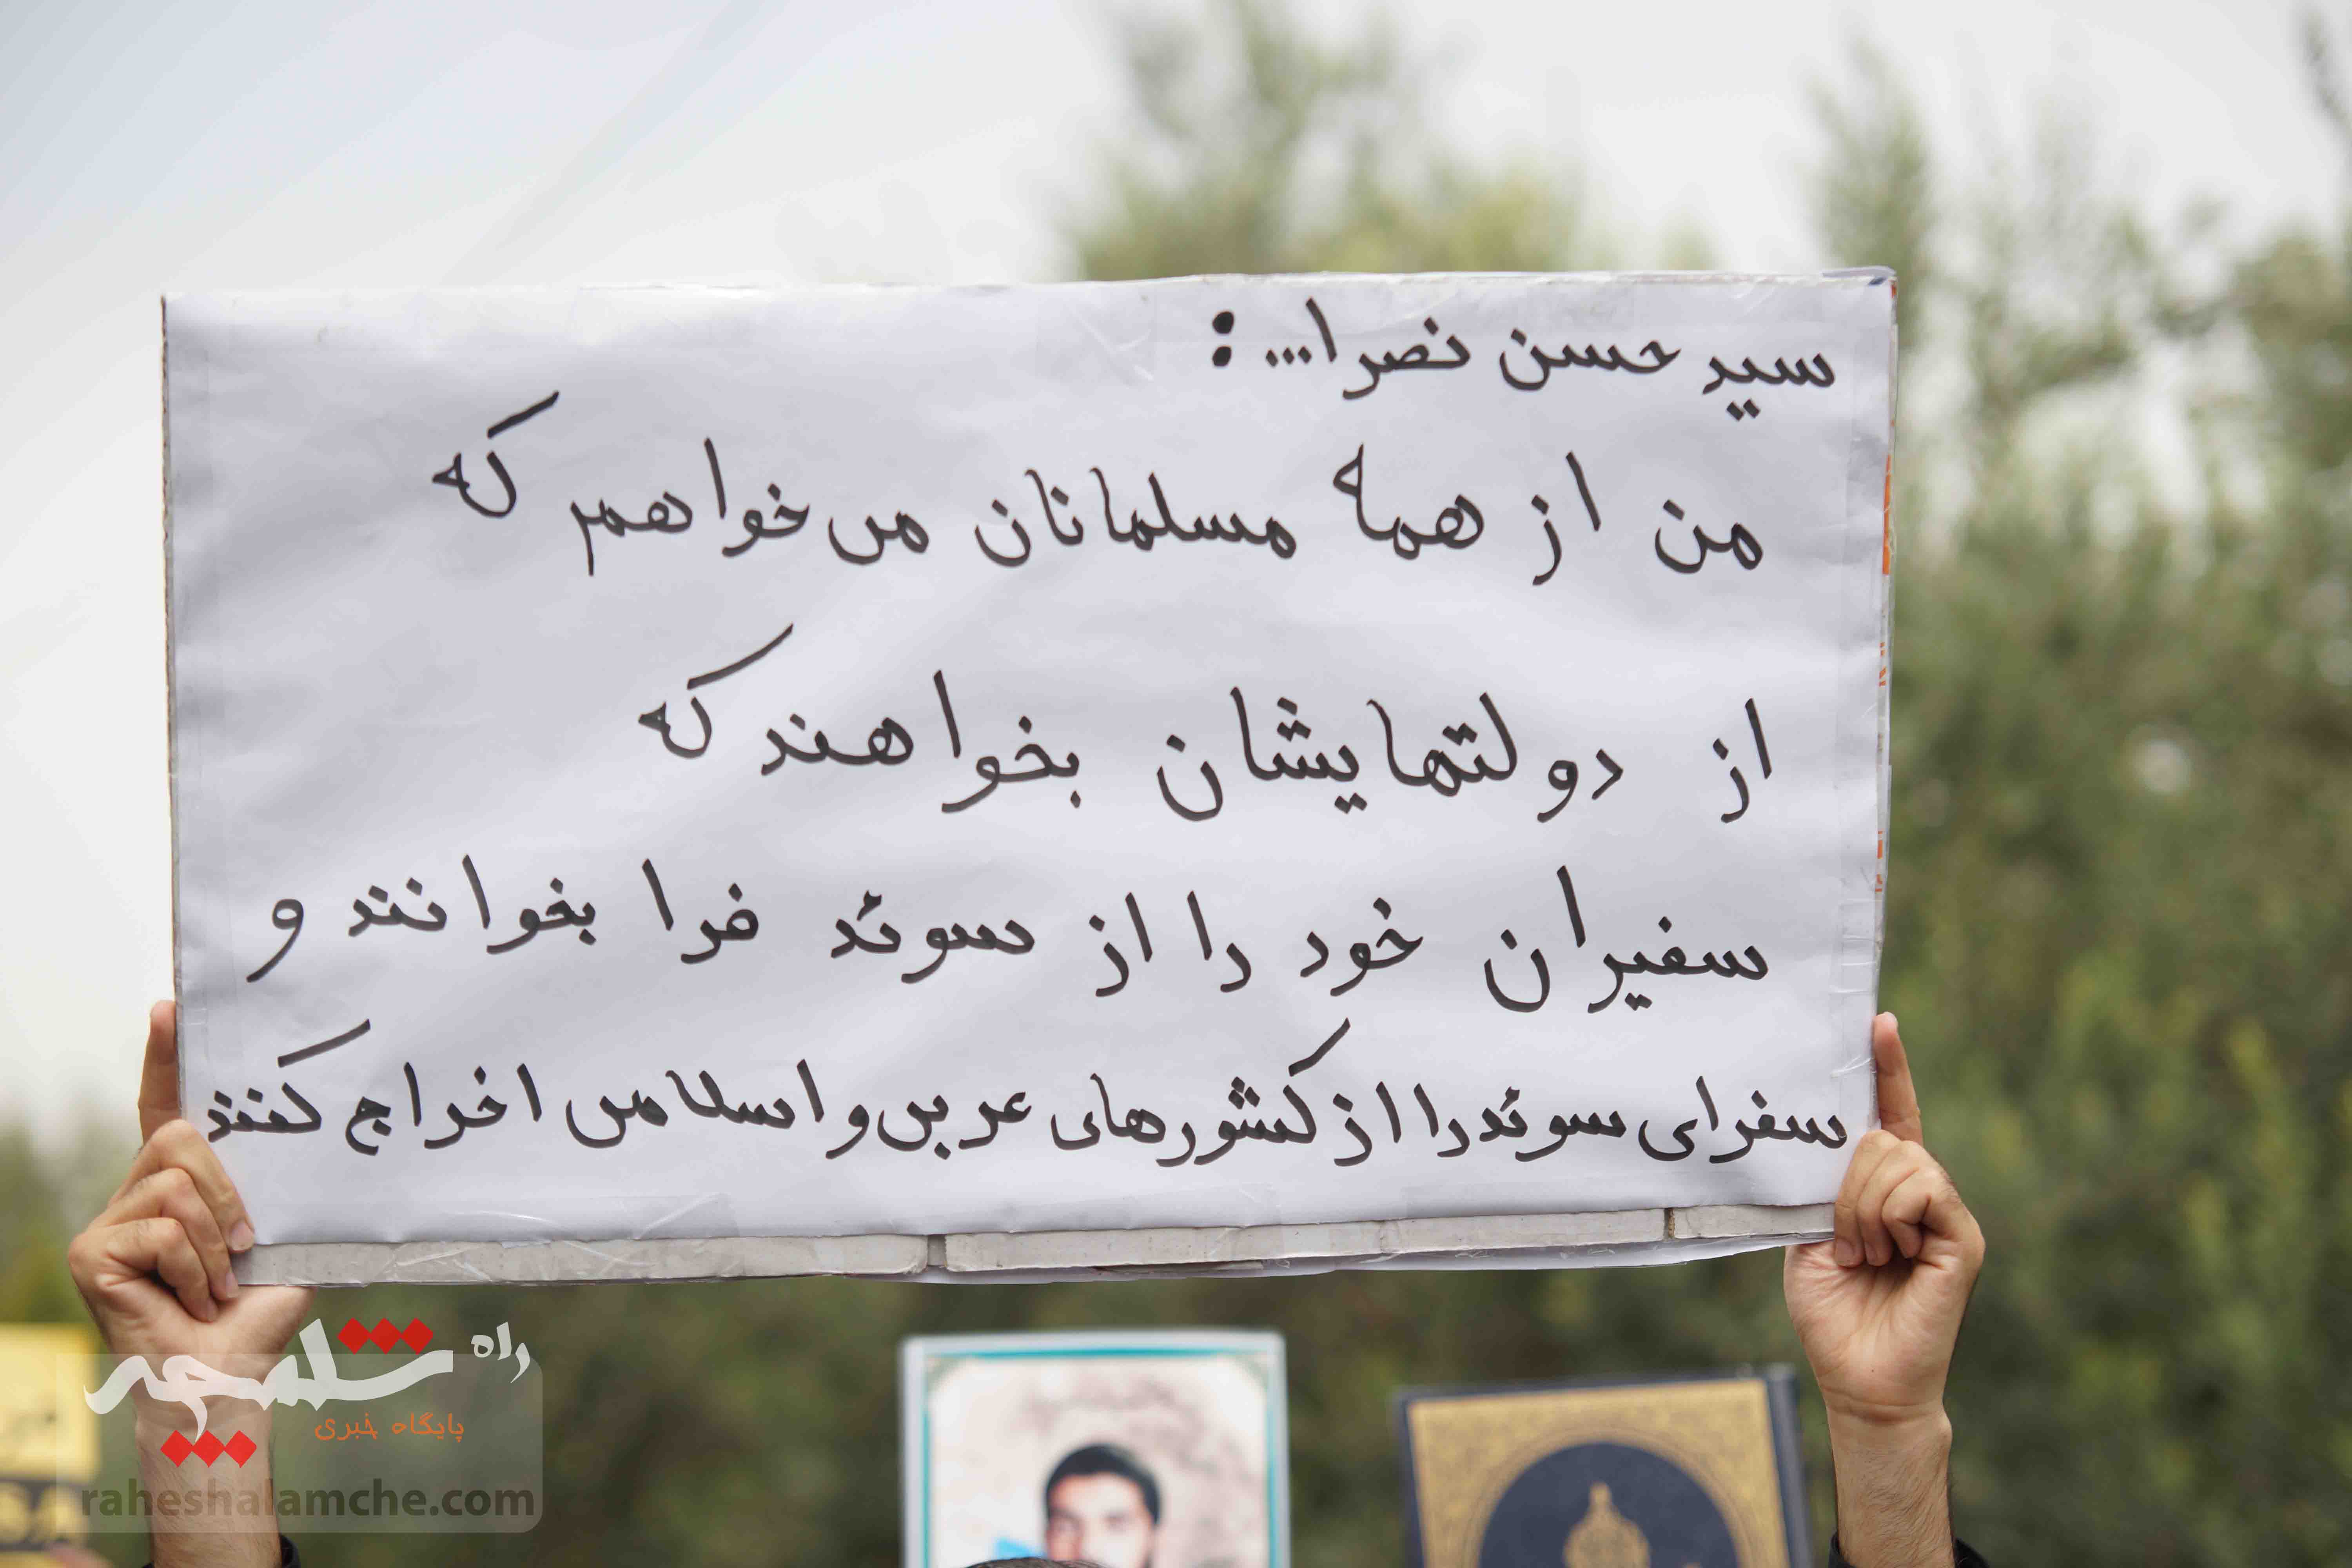 سید حسن نصرا... :
من از همه مسلمانان می‌خواهم که
از دولتهایشان بخواهند که
سفیران خود را از سوئد فرا بخوانند و
سفرای سوئد را از کشورهای عربی و اسلامی اخراج کنند
راه شلمچه
پایگاه خبری
raheshalamche.com